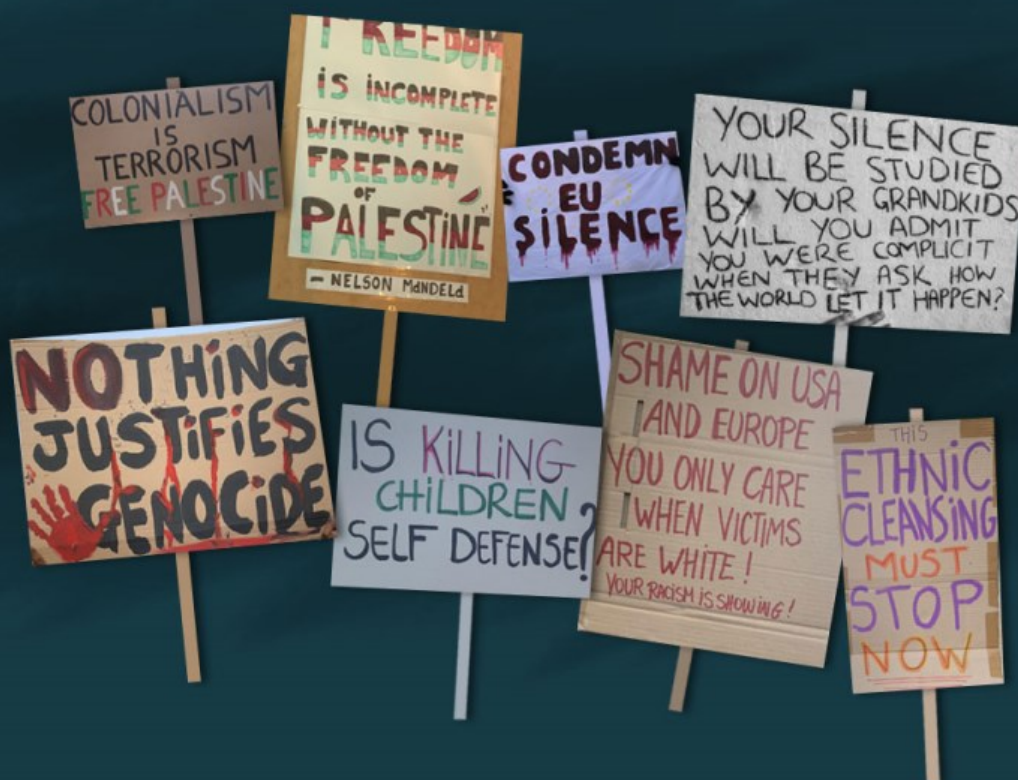 COLONIALISM
IS
TERRORISM
FREE PALESTINE
FREEDOM
iS iNCOMPLETE
WiTHOUT THE
FREEDOM
OF
PALESTiNE
- NELSON MANDELA
CONDEMN
EU
SiLENCE
YOUR SILENCE
WILL BE STUDIED
BY YOUR GRANDKIDS
WILL YOU ADMIT
YOU WERE COMPLICIT
WHEN THEY ASK HOW
THE WORLD LET IT HAPPEN?
NOTHiNG
JUSTiFiES
GENOCiDE
IS KiLLiNG
CHiLDREN
SELF DEFENSE?
SHAME ON USA
AND EUROPE
YOU ONLY CARE
WHEN VICTIMS
ARE WHITE!
YOUR RACISM IS SHOWING!
THIS
ETHNiC
CLEANSiNG
MUST
STOP
NOW